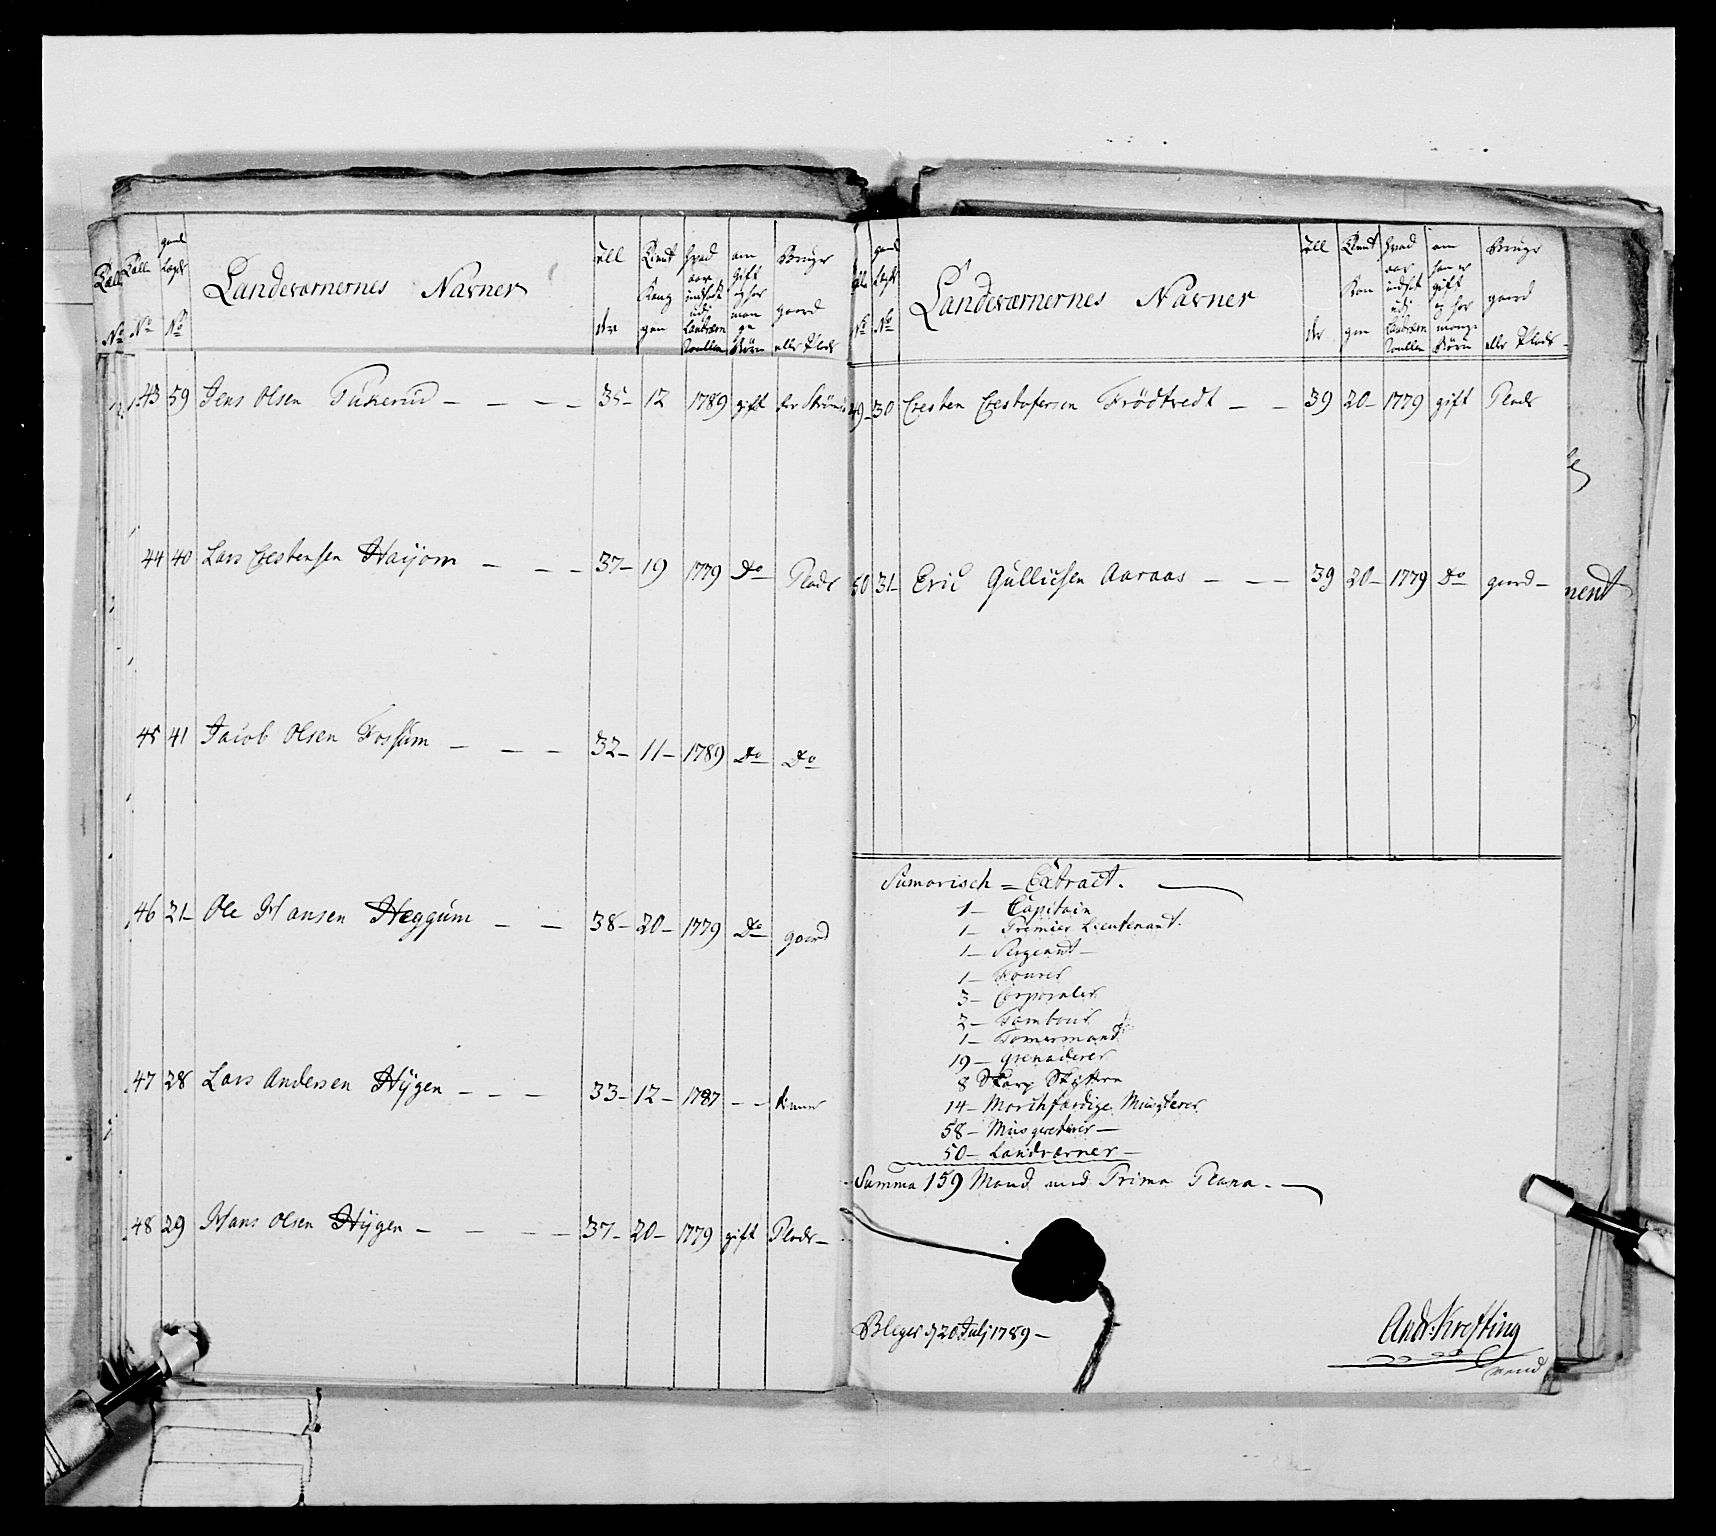 Rulle No
Rulle No
gaml Lægds No
Landeværnernes Navner
All der
Tient Kong gen
hvad aar indsat udi Landværn Rullen
om gift og hor man ge Börn
Bruger gaard eller Plads
43 59 Jens Olsen 35 – 12 1789 gift
44 40 Lars Chestensen Haijom 37 – 19 1779 Do Plads
45 41 Jacob Olsen Fossum 32 – 11 – 1789 Do Do
46 21 – Ole Hansen Heggum 38 – 20 – 1779 Do gaard
47 28 Lars Andersen Hÿgen 33 – 12 – 1787 – –
48 29 Hans Olsen Hÿgen 37 – 20 – 1779 gift Plads –
No
gaml Lægds No
Landeværnernes Navner
All der
Tient Kon gen
hvad aar indsat udi Landværn Rullen
om han er gift og hor mange Börn
Bruger gaard eller Plads
49 – 30 Chesten Chestofersen Frödtvedt 39 20 – 1779 gift Plads
50 31 – Eric Gullichsen Aaraas 39 20 – 1779 Do gaard –
ment
Sumarisch = Extract.
1 – Capitain
1 – Premier Lieutenant.
1 – Sergeant –
1 – Fourer
3 – Corporaler
2 – Tambour
1 – Tömermand
19 – Grenaderer
8 Skarp Skÿttere
14 – Marchfærdige Musqterer
58 – Musqveterer –
50 – Landværner –
Summa 159 Mand med Prima Plana.
Bleger d 20 Julj 1789 –
And: Krefting